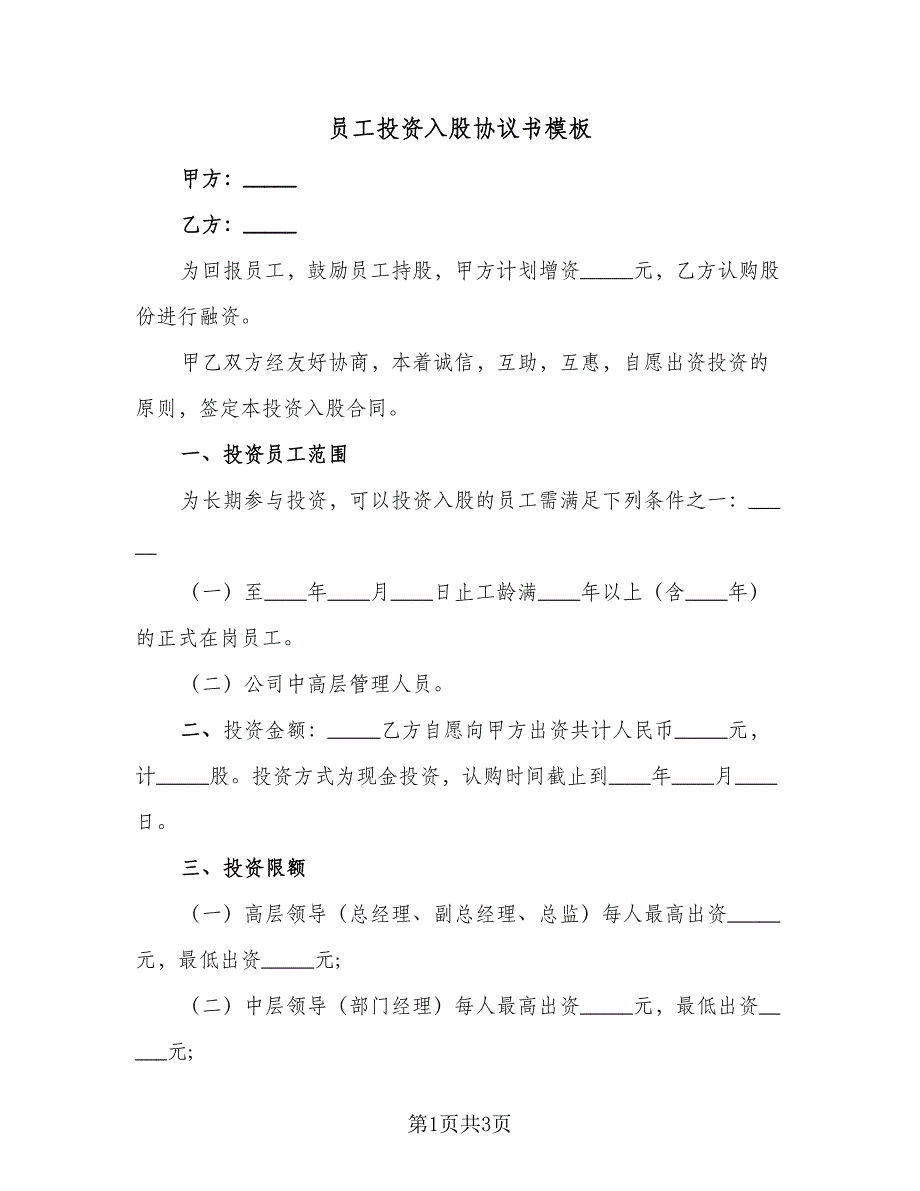 员工投资入股协议书模板
甲方：_____
乙方：_____
为回报员工，鼓励员工持股，甲方计划增资_____元，乙方认购股
份进行融资。
甲乙双方经友好协商，本着诚信，互助，互惠，自愿出资投资的
原则，签定本投资入股合同。
一、投资员工范围
为长期参与投资，可以投资入股的员工需满足下列条件之一：___
__
（一）至____年____月____日止工龄满____年以上（含____年）
的正式在岗员工。
（二）公司中高层管理人员。
二、投资金额：_____乙方自愿向甲方出资共计人民币_____元，
计_____股。投资方式为现金投资，认购时间截止到____年____月____
日。
三、投资限额
（一）高层领导（总经理、副总经理、总监）每人最高出资_____
元，最低出资_____元;
（二）中层领导（部门经理）每人最高出资_____元，最低出资__
___元;
第1页共3页